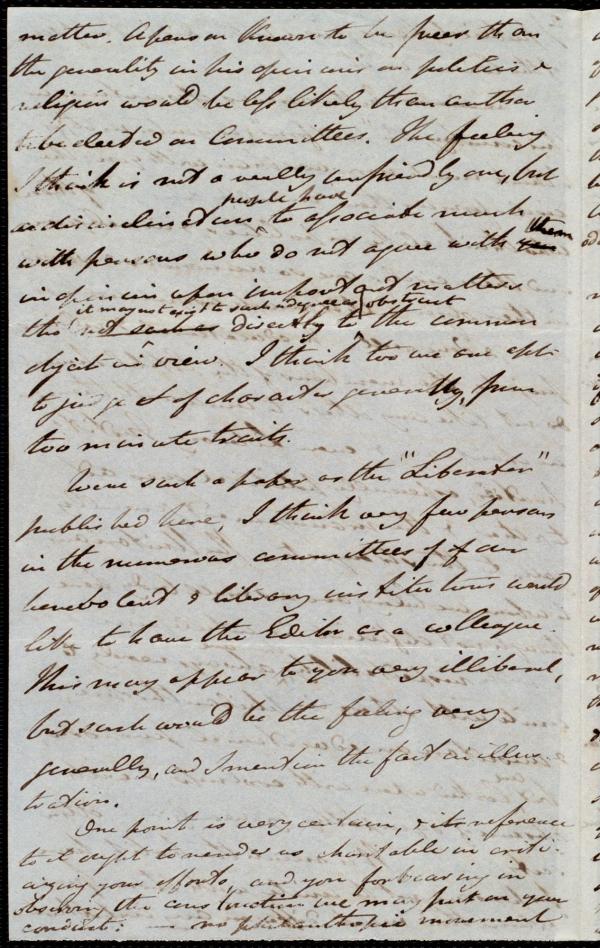 matter. A person known to be freer than
the generality in his opinions on politics &
religion would be less likely than another
to be elected on Committees. The feeling
I think is not a really unfriendly one, but
a disinclination people have to associate much
with persons who do not agree with you them
in opinion upon important matters
tho' it may not exist to such a degree as obstruct not such as directly to the common
object in view. I think too we are apt
to judge of character generally, from
too minute traits.
Were such a paper as the "Liberator"
published here, I think very few persons
in the numerous committees of our
benevolent & literary institutions would
like to have the Editor as a colleague.
This may appear to you very illiberal,
but such would be the feeling very
generally, and I mention the fact in illus-
tration.
One point is very certain, & its reference
to it ought to render us charitable in criti-
cizing your efforts, and you forbearing in
observing the construction we may put on your
conduct: — no philanthropic movement